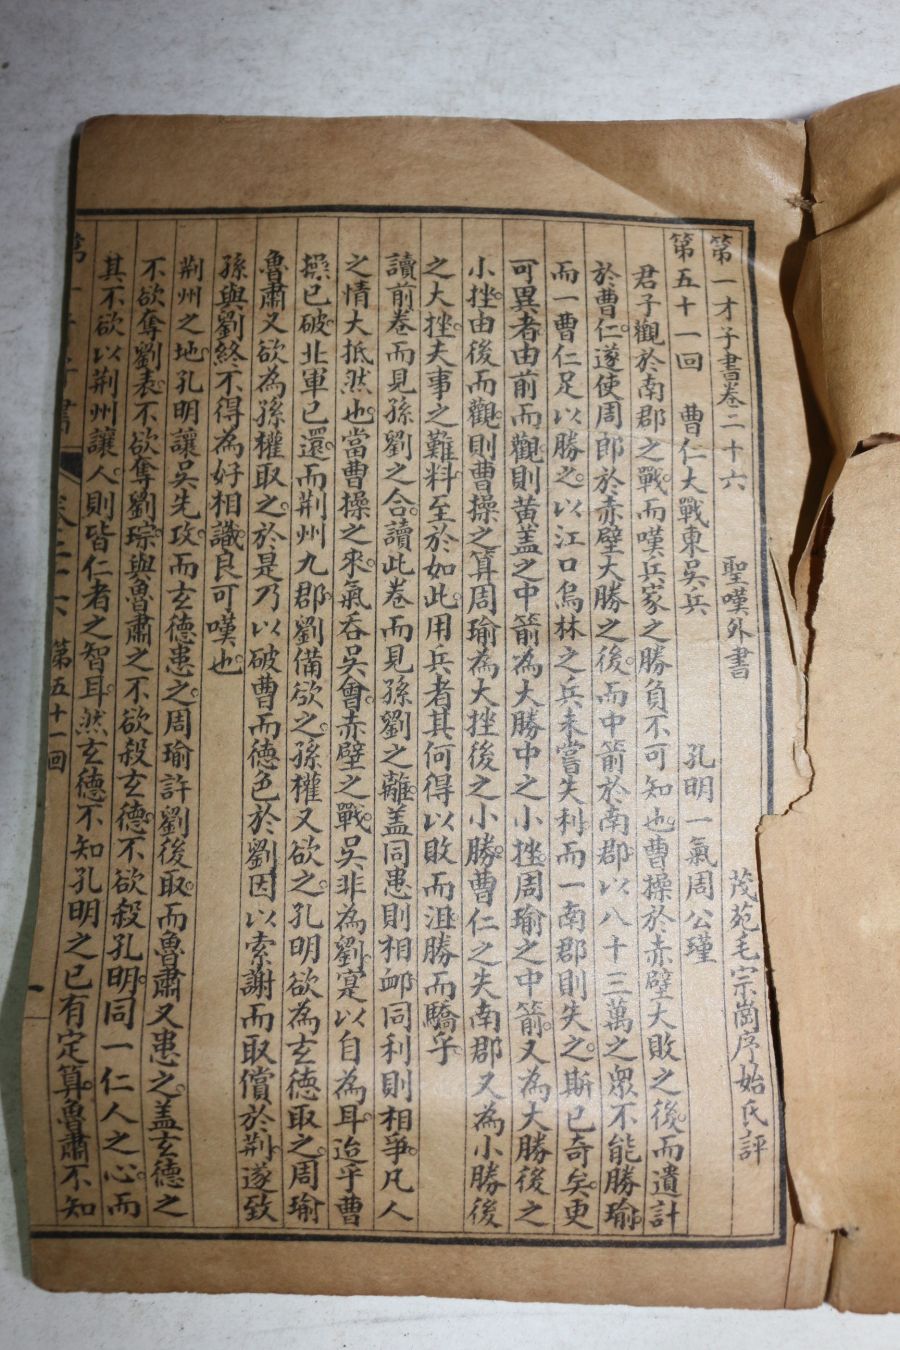 第一才子書卷二十六 聖嘆外書 茂苑毛宗崗序始氏評
第五十一回 曹仁大戰東吳兵 孔明一氣周公瑾
君子觀於南郡之戰而嘆兵家之勝負不可知也曹操於赤壁大敗之後而遺計
於曹仁遂使周郎於赤壁大勝之後而中箭於南郡以八十三萬之眾不能勝瑜
而一曹仁足以勝之以江口烏林之兵未嘗失利而一南郡則失之斯已奇矣更
可異者由前而觀則黃蓋之中箭為大勝中之小挫周瑜之中箭又為大勝後之
小挫由後而觀則曹操之算周瑜為大挫後之小勝曹仁之失南郡又為小勝後
之大挫夫事之難料至於如此用兵者其何得以敗而沮勝而驕乎
讀前卷而見孫劉之合讀此卷而見孫劉之離蓋同患則相卹同利則相爭凡人
之情大抵然也當曹操之來氣吞吳會赤壁之戰吳非為劉寔以自為耳迨乎曹
操已破北軍已還而荊州九郡劉備欲之孫權又欲之孔明欲為玄德取之周瑜
魯肅又欲為孫權取之於是乃以破曹而德色於劉因以索謝而取償於荊遂致
孫與劉終不得為好相識良可嘆也
荊州之地孔明讓吳先攻而玄德患之周瑜許劉後取而魯肅又患之蓋玄德之
不欲奪劉表不欲奪劉琮與魯肅之不欲殺玄德不欲殺孔明同一仁人之心而
其不欲以荊州讓人則皆仁者之智耳然玄德不知孔明之已有定算魯肅不知
第一才子書 卷二十六 第五十一回 一